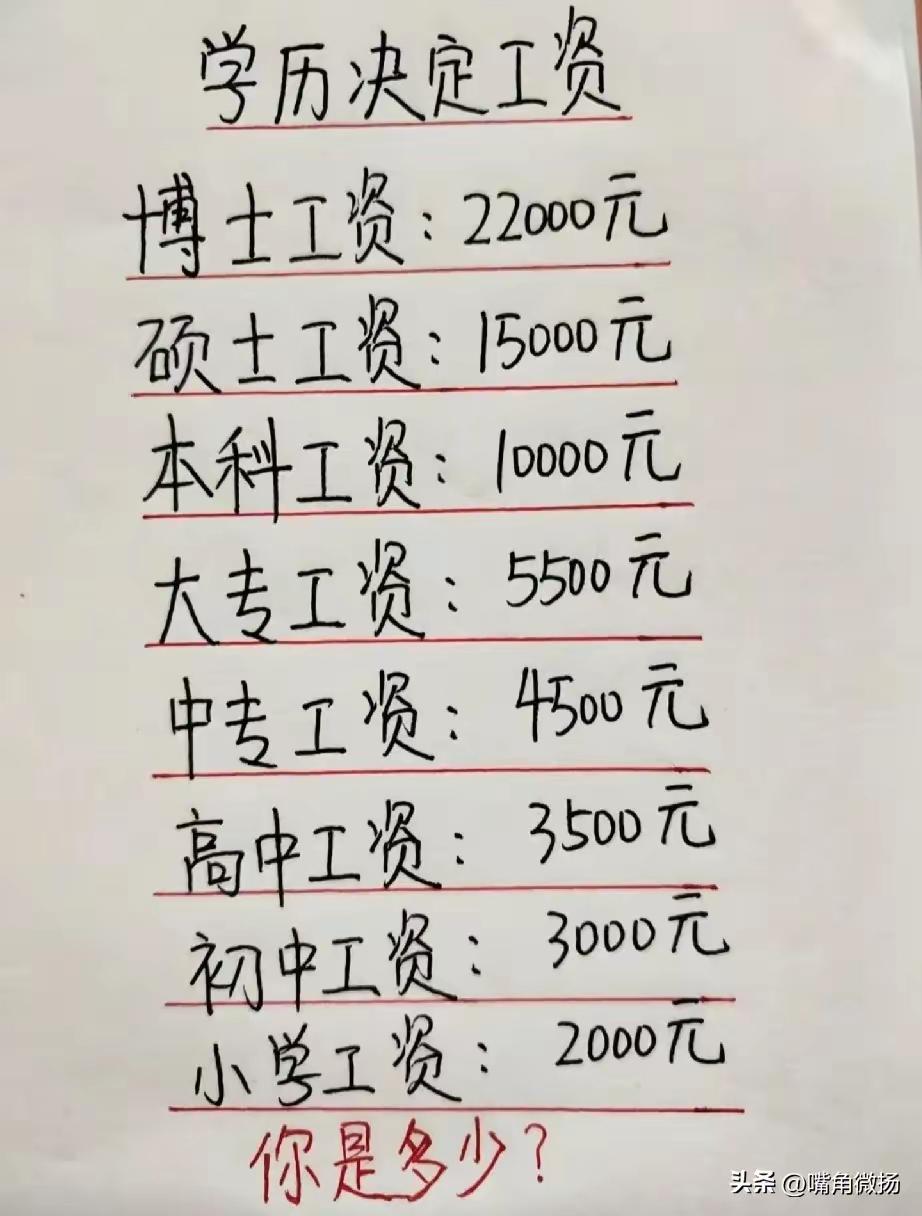 学历决定工资
博士工资：22000元
硕士工资：15000元
本科工资：10000元
大专工资：5500元
中专工资：4500元
高中工资：3500元
初中工资：3000元
小学工资：2000元
你是多少？
头条 @嘴角微扬